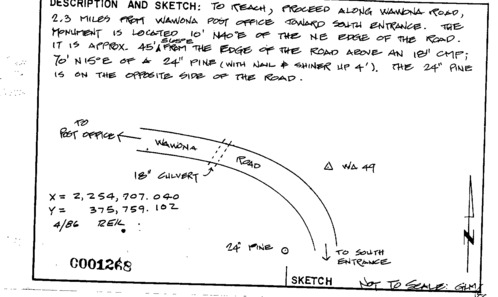 DESCRIPTION AND SKETCH: TO REACH, PROCEED ALONG WAWONA ROAD,
2.3 MILES FROM WAWONA POST OFFICE TOWARD SOUTH ENTRANCE. THE
MONUMENT IS LOCATED 10' N40°E OF THE NE EDGE OF THE ROAD.
IT IS APPROX. 45' FROM THE EDGE OF THE ROAD ABOVE AN 18" CMP;
70' N15°E OF A 24" PINE (WITH NAIL & SHINER UP 4'). THE 24" PINE
IS ON THE OPPOSITE SIDE OF THE ROAD.
TO
POST OFFICE
WAWONA
ROAD
18" CULVERT
WA 49
X = 2,254,707.040
Y = 375,759.102
4/86 REIL
N
24" PINE
TO SOUTH
ENTRANCE
C001268
SKETCH
NOT TO SCALE: